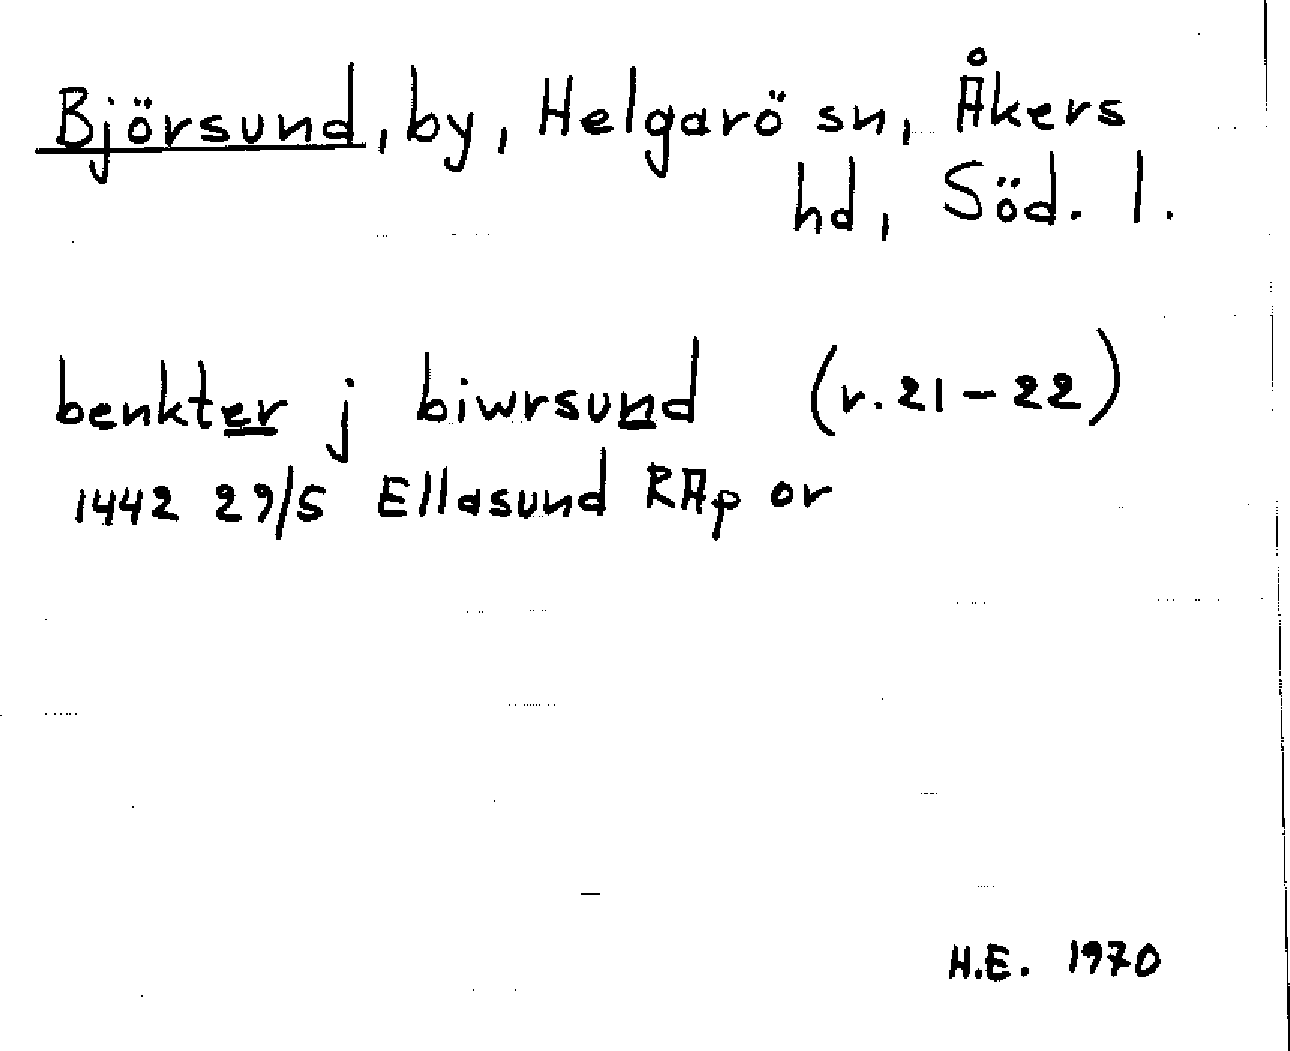 Björsund, by, Helgarö sn, Åkers
hd, Söd. l.
benkter j biwrsund (r. 21-22)
1442 29/5 Ellasund RAp or
H.E. 1970